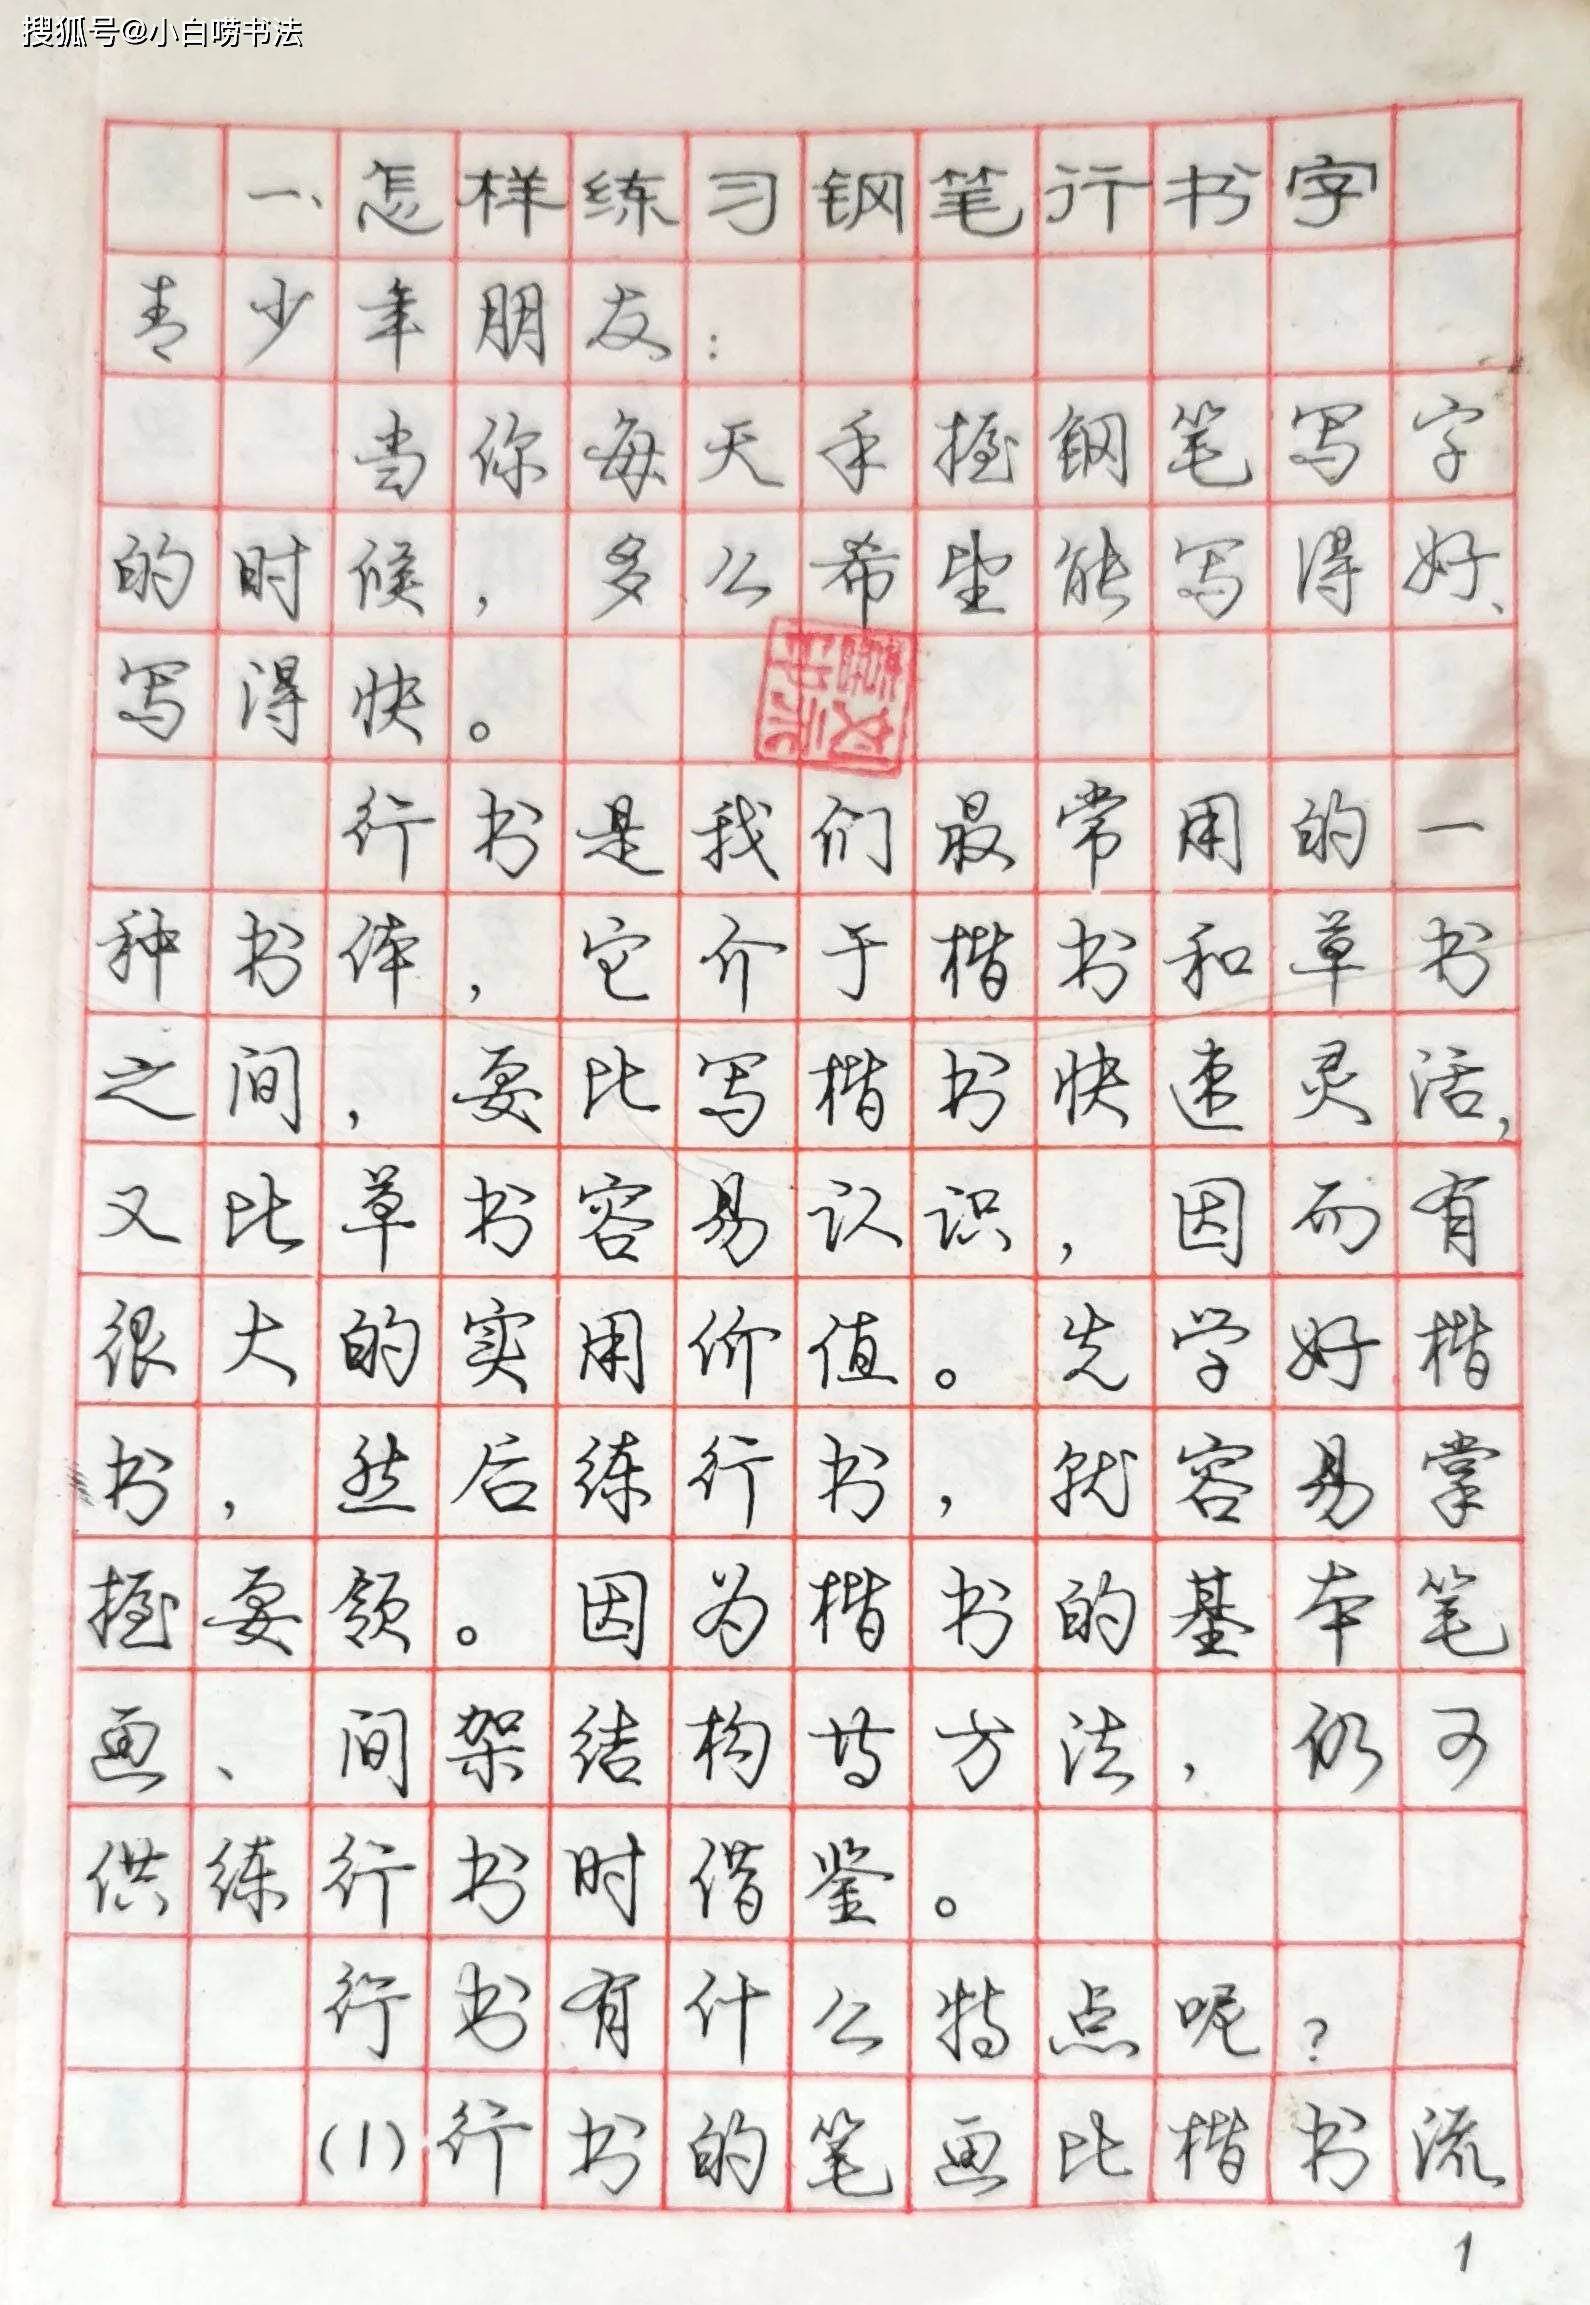 搜狐号@小白唠书法
一、怎样练习钢笔行书字
青少年朋友：
当你每天手握钢笔写字
的时候，多么希望能写得好、
写得快。
行书是我们最常用的一
种书体，它介于楷书和草书
之间，要比写楷书快速灵活，
又比草书容易认识，因而有
很大的实用价值。先学好楷
书，然后练行书，就容易掌
握要领。因为楷书的基本笔
画、间架结构等方法，仍可
供练行书时借鉴。
行书有什么特点呢？
(1)行书的笔画比楷书流
1